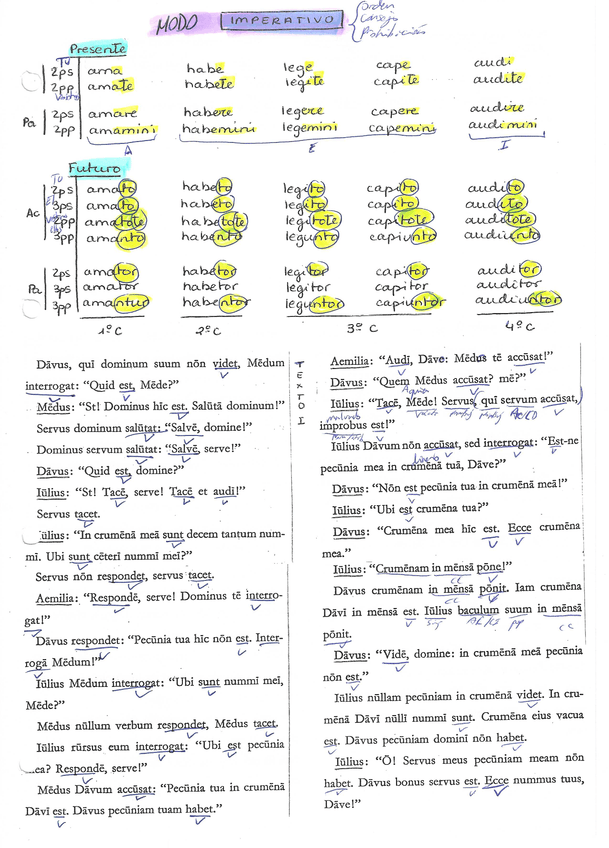 MODO IMPERATIVO
Orden
Consejo
Prohibición
Presente
Tú
2ps ama habe lege cape audi
2pp amate habete legite capite audite
Vosotros
Pa
2ps amare habere legere capere audire
2pp amamini habemini legemini capemini audimini
A E I
Futuro
Tú
Ac
2ps amato habeto legito capito audito
3ps amato habeto legito capito audito
2pp amatote habetote legitote capitote auditote
3pp amanto habento legunto capiunto audiunto
Pa
2ps amator habetor legitor capitor auditor
3ps amator habetor legitor capitor auditor
3pp amantur habentor leguntor capiuntor audiuntor
1º C 2º C 3º C 4º C
Dāvus, quī dominum suum nōn videt, Mēdum
interrogat: “Quid est, Mēde?”
Mēdus: “St! Dominus hīc est. Salūtā dominum!”
Servus dominum salūtat: “Salvē, domine!”
Dominus servum salūtat: “Salvē, serve!”
Dāvus: “Quid est, domine?”
Iūlius: “St! Tacē, serve! Tacē et audī!”
Servus tacet.
ūlius: “In crumēnā meā sunt decem tantum num-
mī. Ubi sunt cēterī nummī meī?”
Servus nōn respondet, servus tacet.
Aemilia: “Respondē, serve! Dominus tē interro-
gat!”
Dāvus respondet: “Pecūnia tua hīc nōn est. Inter-
rogā Mēdum!”
Iūlius Mēdum interrogat: “Ubi sunt nummī meī,
Mēde?”
Mēdus nūllum verbum respondet, Mēdus tacet.
Iūlius rūrsus eum interrogat: “Ubi est pecūnia
ea? Respondē, serve!”
Mēdus Dāvum accūsat: “Pecūnia tua in crumēnā
Dāvī est. Dāvus pecūniam tuam habet.”
TEXTO I
Aemilia: “Audī, Dāve: Mēdus tē accūsat!”
Dāvus: “Quem Mēdus accūsat? mē?”
Iūlius: “Tacē, Mēde! Servus, quī servum accūsat,
improbus est!”
Iūlius Dāvum nōn accūsat, sed interrogat: “Est-ne
pecūnia mea in crumēnā tuā, Dāve?”
Dāvus: “Nōn est pecūnia tua in crumēnā meā!”
Iūlius: “Ubi est crumēna tua?”
Dāvus: “Crumēna mea hīc est. Ecce crumēna
mea.”
Iūlius: “Crumēnam in mēnsā pōne!”
CC
Dāvus crumēnam in mēnsā pōnit. Iam crumēna
Dāvī in mēnsā est. Iūlius baculum suum in mēnsā
CC
pōnit.
Dāvus: “Vidē, domine: in crumēnā meā pecūnia
nōn est.”
Iūlius nūllam pecūniam in crumēnā videt. In cru-
mēnā Dāvī nūllī nummī sunt. Crumēna eius vacua
est. Dāvus pecūniam dominī nōn habet.
Iūlius: “Ō! Servus meus pecūniam meam nōn
habet. Dāvus bonus servus est. Ecce nummus tuus,
Dāve!”